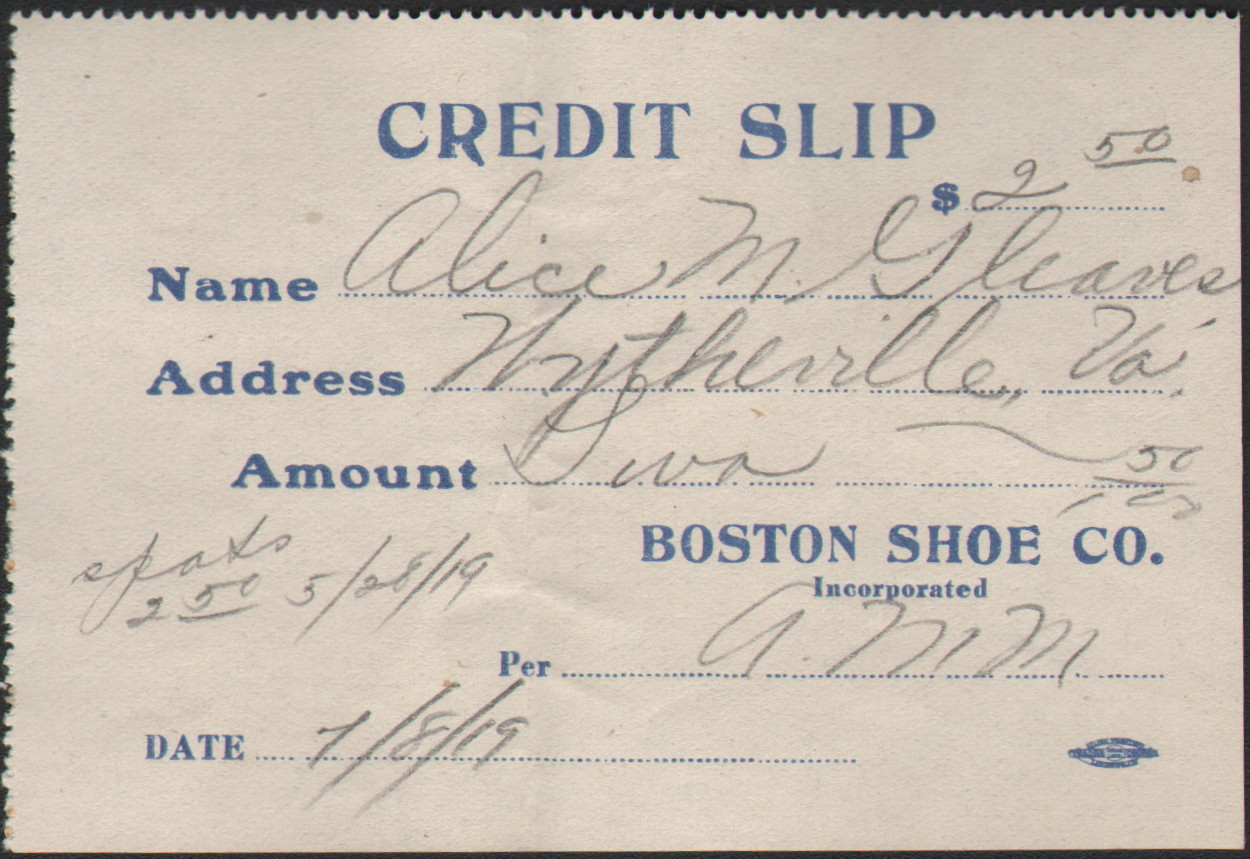 CREDIT SLIP
$ 2 50
Name Alice M. Gleaves
Address Wytheville, Va.
Amount Two 50/100
BOSTON SHOE CO.
Incorporated
spats
2 50 5/28/19
Per A. M. M
DATE 7/8/19